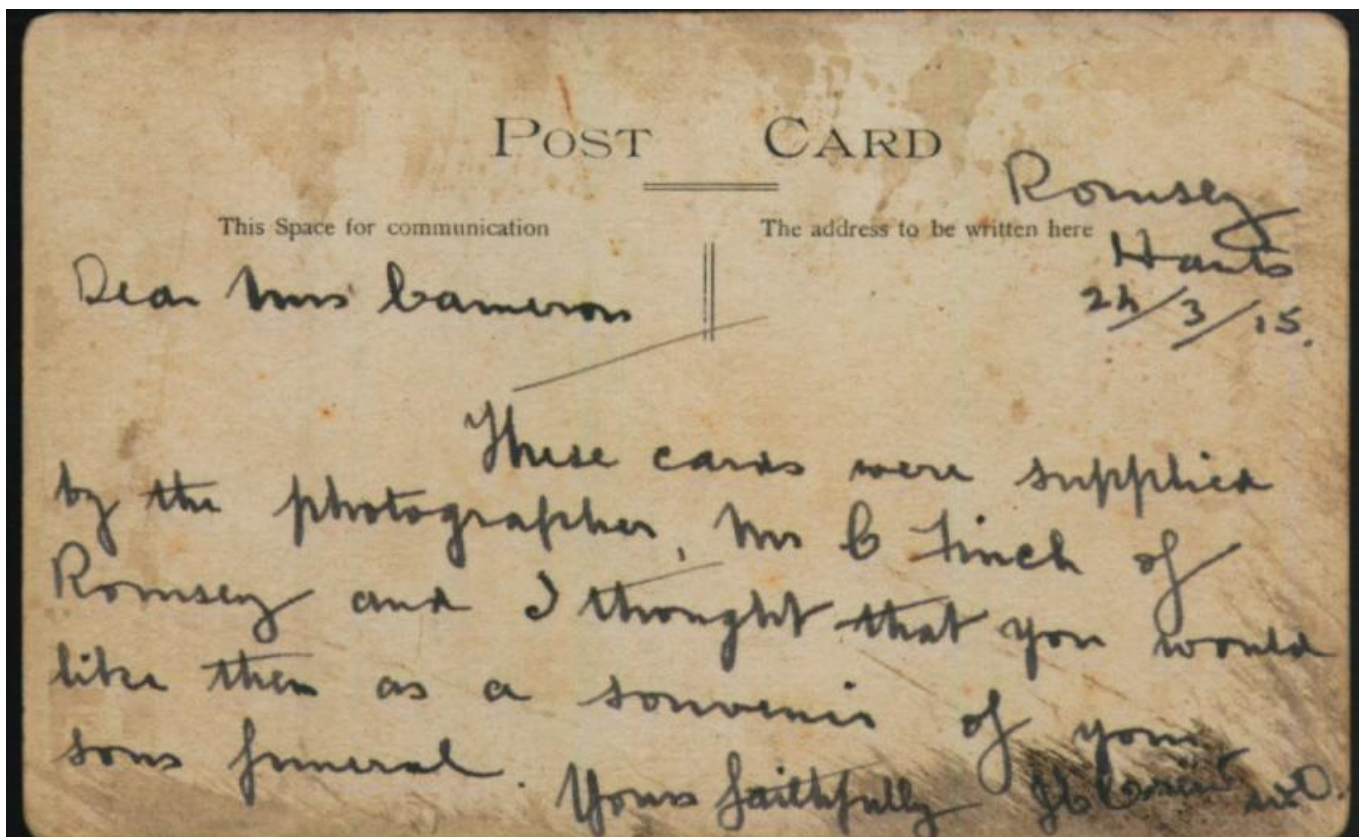 POST CARD
This Space for communication
The address to be written here
Romsey
Hants
24/3/15.
Dear Mrs Cameron
These cards were supplied
by the photographer, Mr C Finch of
Romsey and I thought that you would
like them as a souvenir of your
sons funeral. Yours faithfully